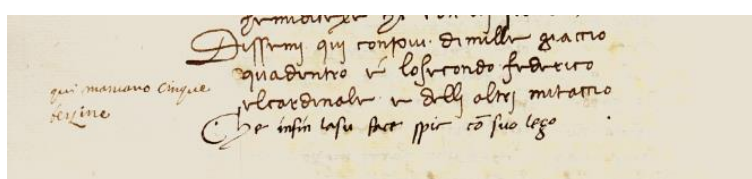 Dissemi qui conpiu di mille giaccio
quadentro é losecondo federico
elcardinale e delli altri mitaccio
Che infin lasu face spic cō suo lego
qui mancano cinque
terzine